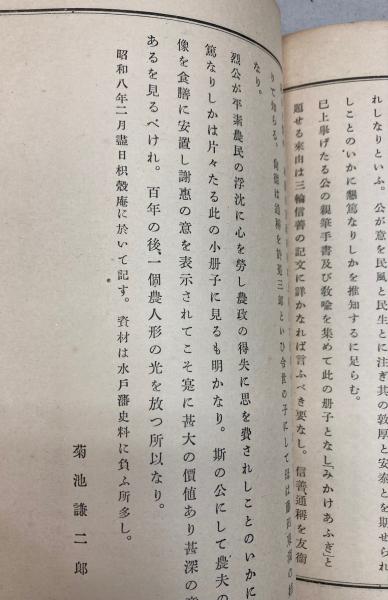 れしなりといふ。公が意を民風と民生とに注ぎ其の敦厚と安泰とを期せられ
しことの如何に懇篤なりしかを推知するに足らむ。
已上擧げたる公の親筆手書及び敎喩を集めて此の册子となし「みかけあふぎ」と
題せる來由は三輪信善の記文に詳かなれば言ふべき要なし。信善通稱を友衞
りて知らる。
なり。
烈公が平素農民の浮沈に心を勞し農政の得失に思を費されしことのいかに
篤なりしかは片々たる此の小册子に見るも明かなり。斯の公にして農夫の
像を食膳に安置し謝惠の意を表示されてこそ寔に甚大の價値あり甚深の意
あるを見るべけれ。百年の後、一個農人形の光を放つ所以なり。
昭和八年二月盡日枳殼庵に於いて記す。資材は水戸藩史料に負ふ所多し。
菊池謙二郎